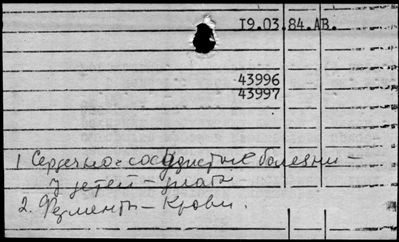 19.03.84.АВ.
43996
43997
1 Сердечно-сосудистые болезни -
у детей - диагн
2. Ферменты - крови.